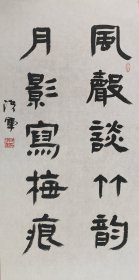 風聲談竹韵
月影寫梅痕